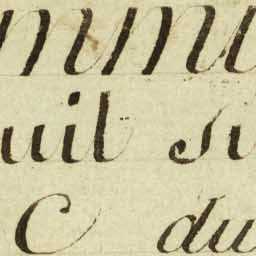 mmu
uil Su
C du